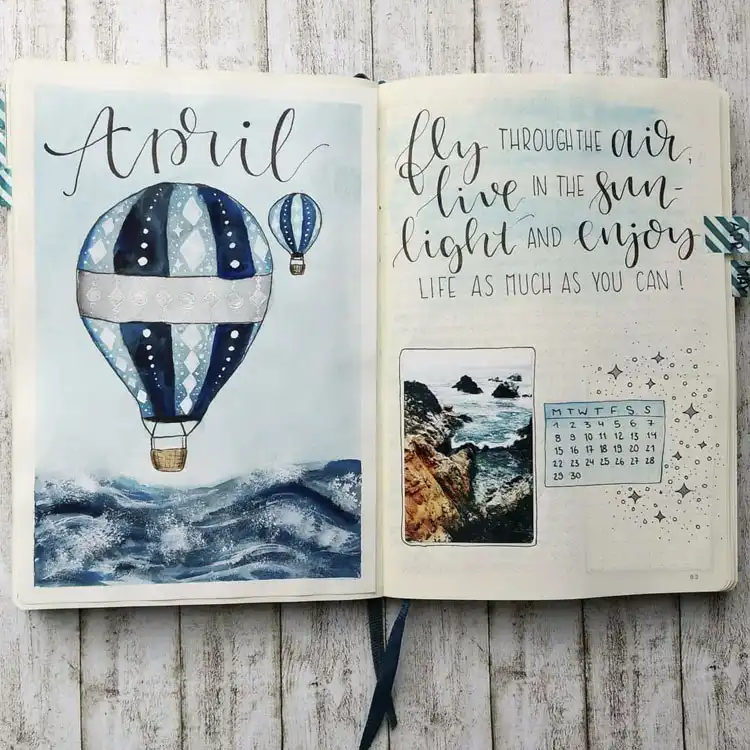 April
fly THROUGH THE air,
live IN THE sun-
light AND enjoy
LIFE AS MUCH AS YOU CAN !
M T W T F S S
1 2 3 4 5 6 7
8 9 10 11 12 13 14
15 16 17 18 19 20 21
22 23 24 25 26 27 28
29 30